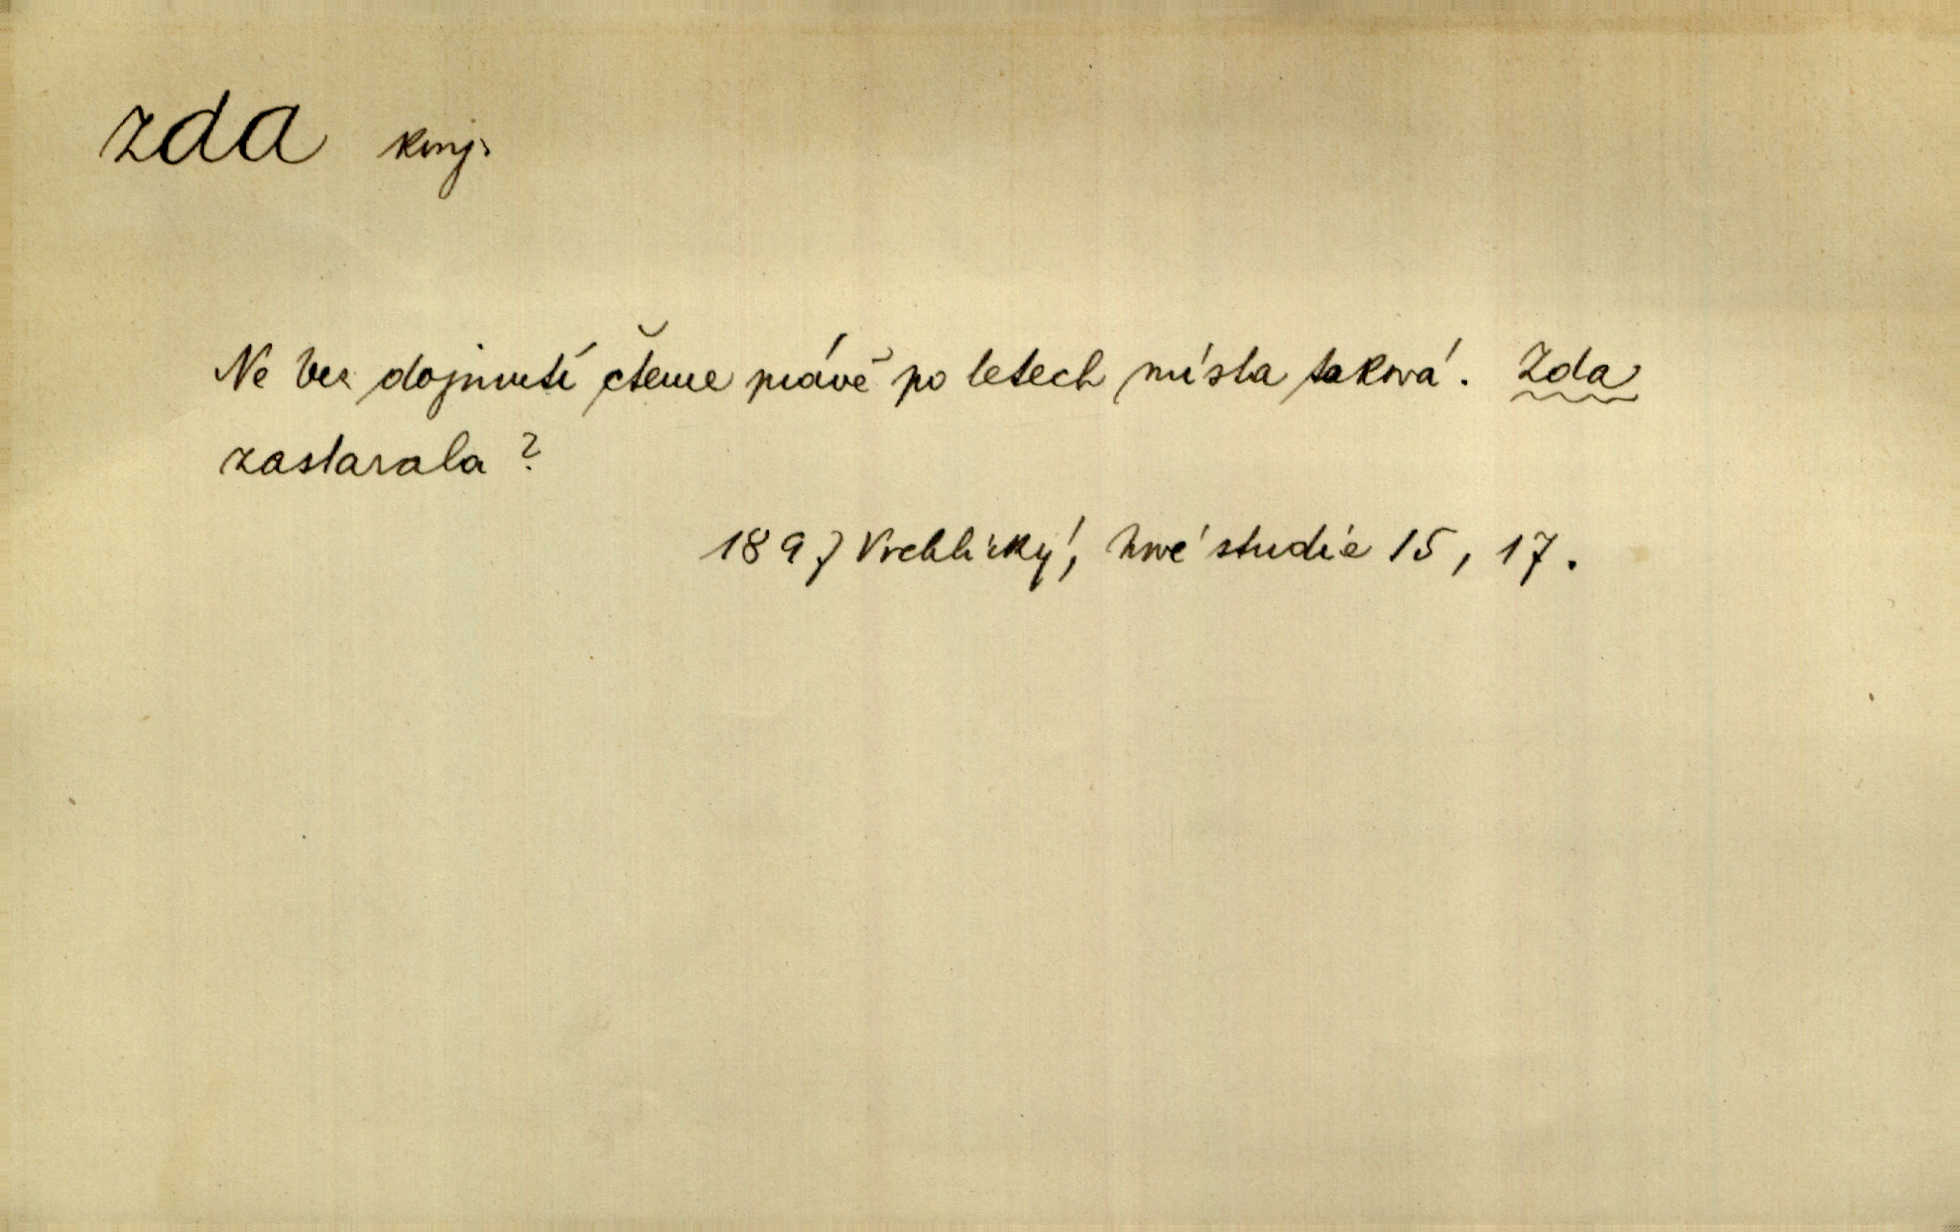 zda konj.
Ne bez dojmutí čteme právě po letech místa taková. Zda
zastarala?
1897 Vrchlický, Nové studie 15, 17.